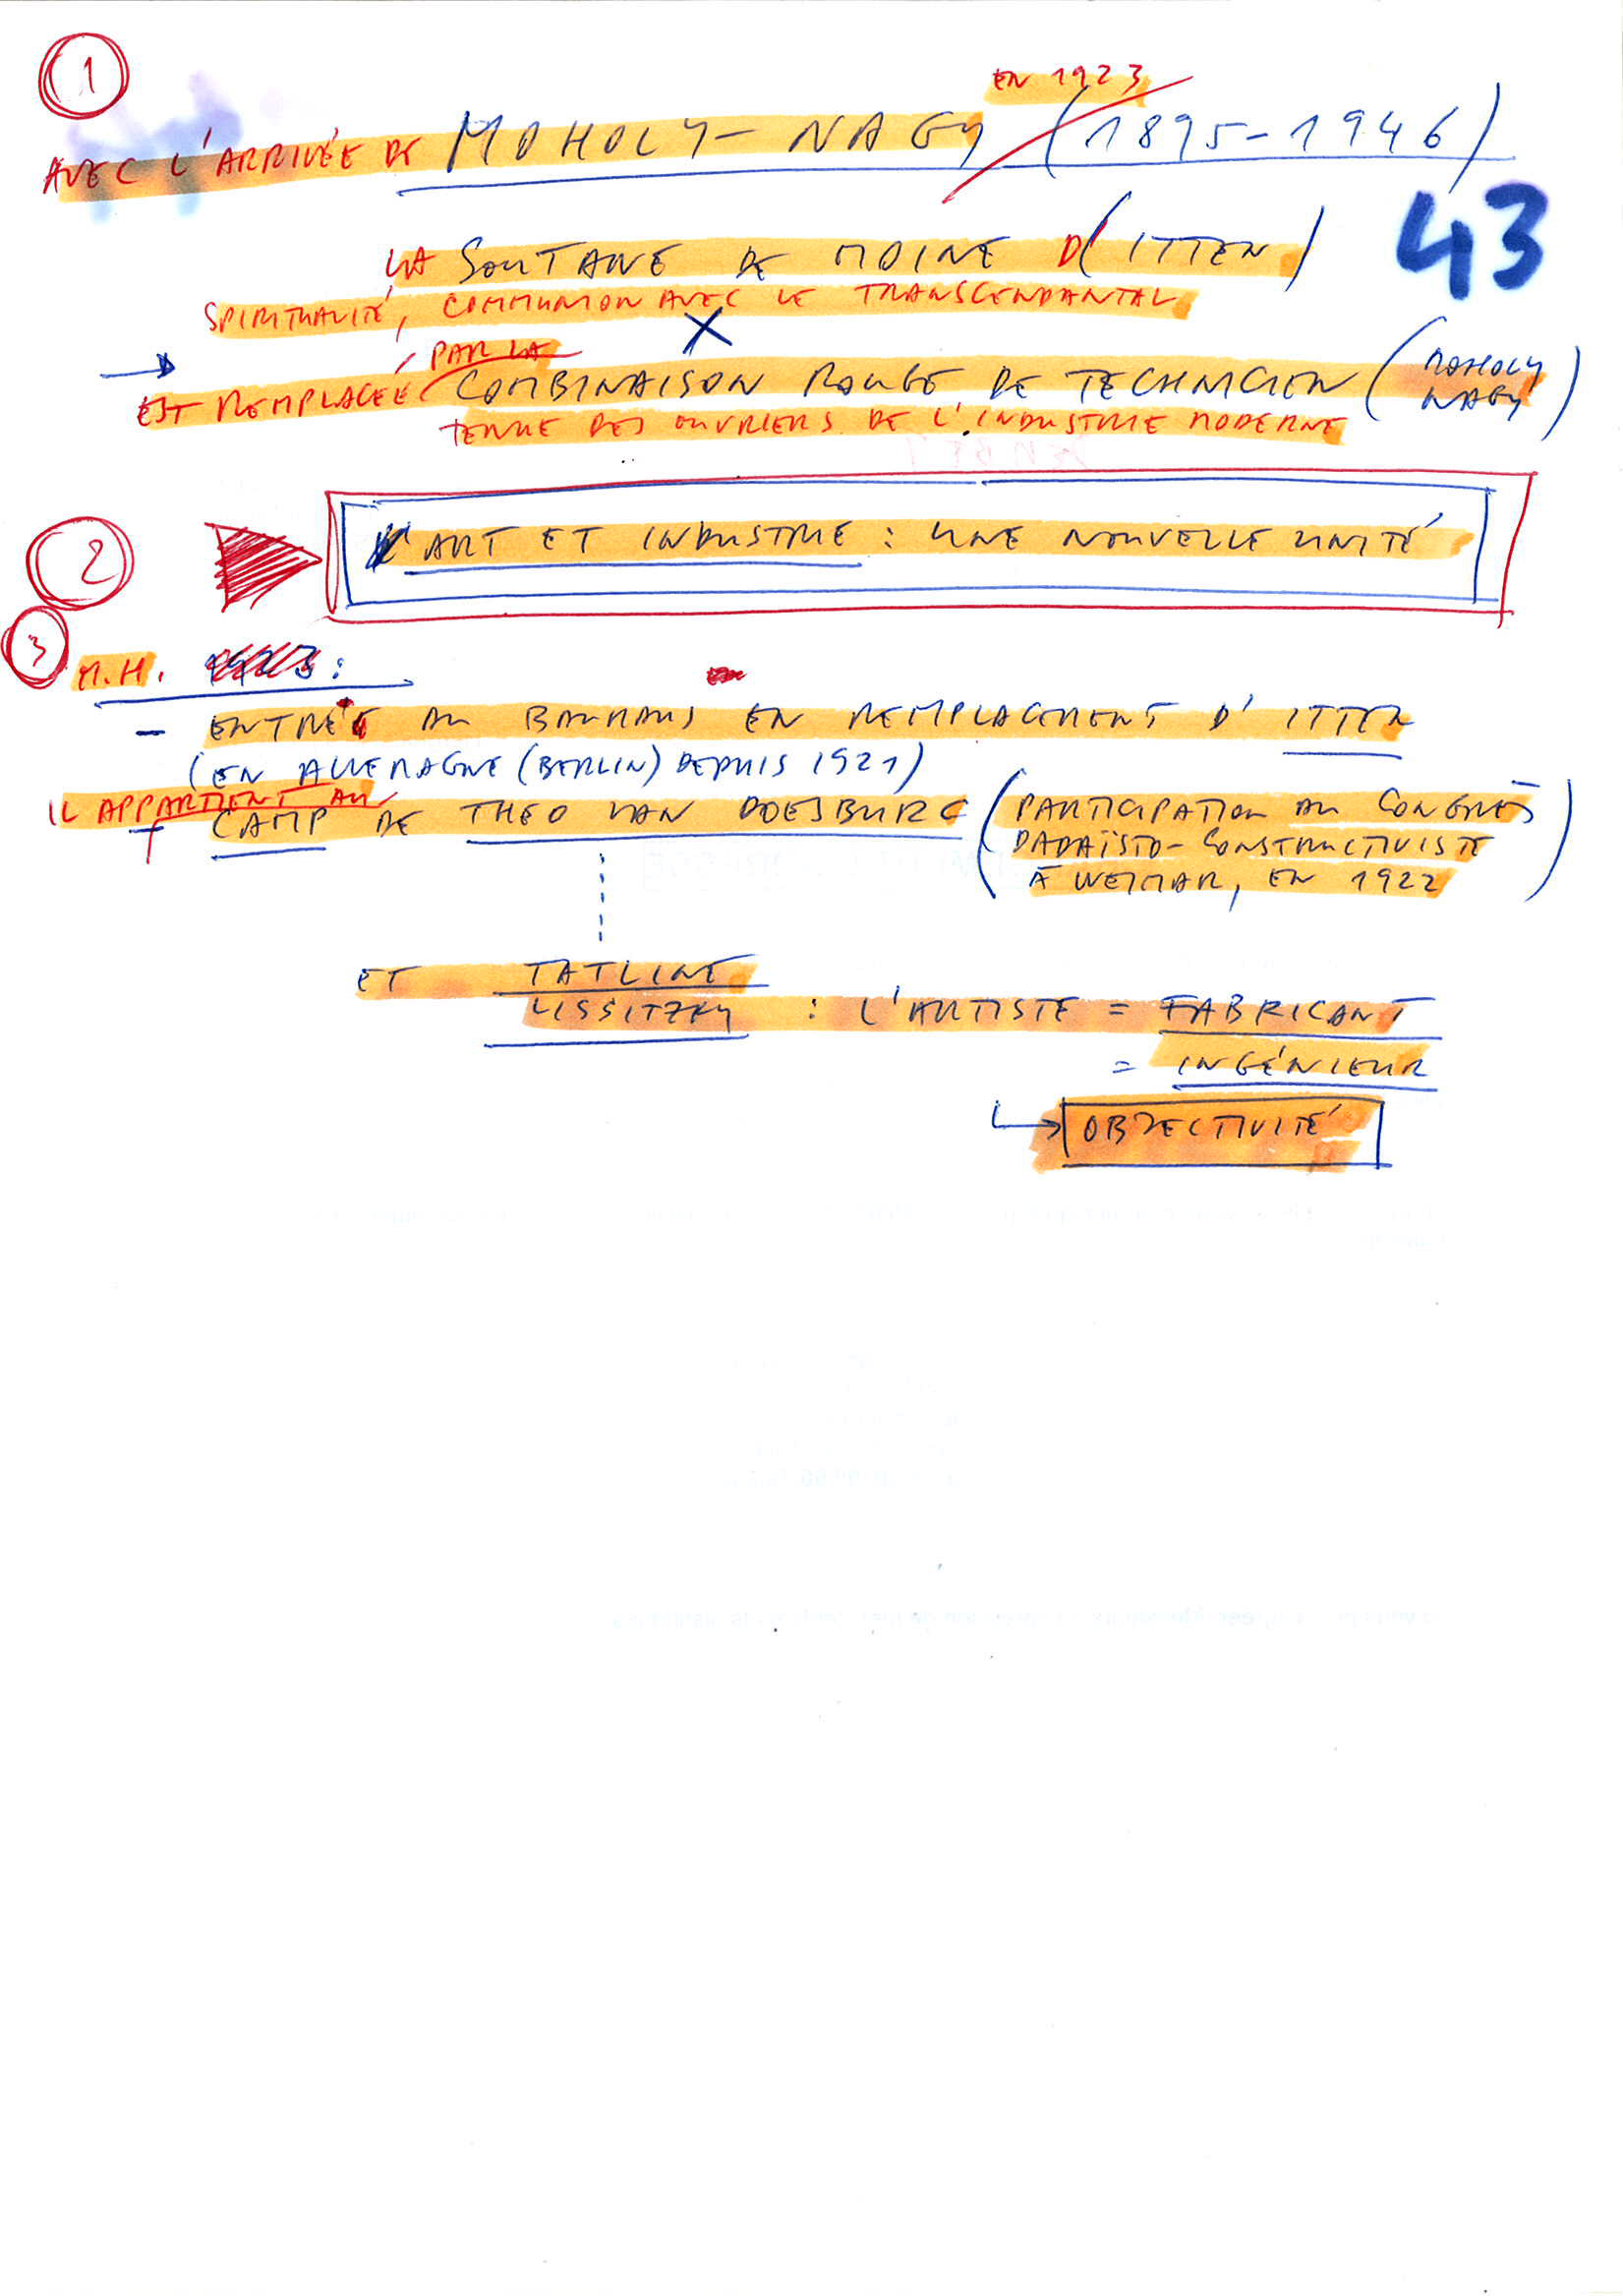 1
EN 1923
AVEC L'ARRIVÉE DE MOHOLY-NAGY (1895-1946)
43
LA SOUTANE DE MOINE D'(ITTEN)
SPIRITUALITÉ, COMMUNION AVEC LE TRANSCENDANTAL
X
→ EST REMPLACÉE PAR LA COMBINAISON ROUGE DE TECHNICIEN (MOHOLY NAGY)
TENUE DES OUVRIERS DE L'INDUSTRIE MODERNE
2
L'ART ET INDUSTRIE : UNE NOUVELLE UNITÉ
3
M.H. 1923 :
- ENTRÉE AU BAUHAUS EN REMPLACEMENT D'ITTEN
(EN ALLEMAGNE (BERLIN) DEPUIS 1921)
IL APPARTIENT AU
CAMP DE THEO VAN DOESBURG (PARTICIPATION AU CONGRÈS
DADAÏSTO-CONSTRUCTIVISTE
À WEIMAR, EN 1922)
ET TATLINE
LISSITZKY : L'ARTISTE = FABRICANT
= INGÉNIEUR
→ OBJECTIVITÉ